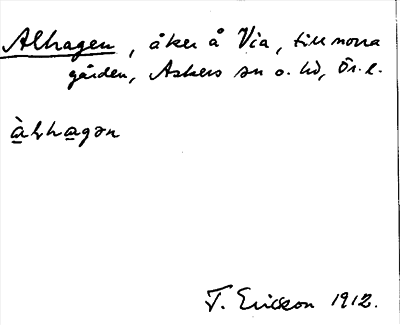 Alhagen, åker å Via, till norra
gården, Askers sn o. hd, Ör. l.
àlhagən
T. Ericsson 1912.